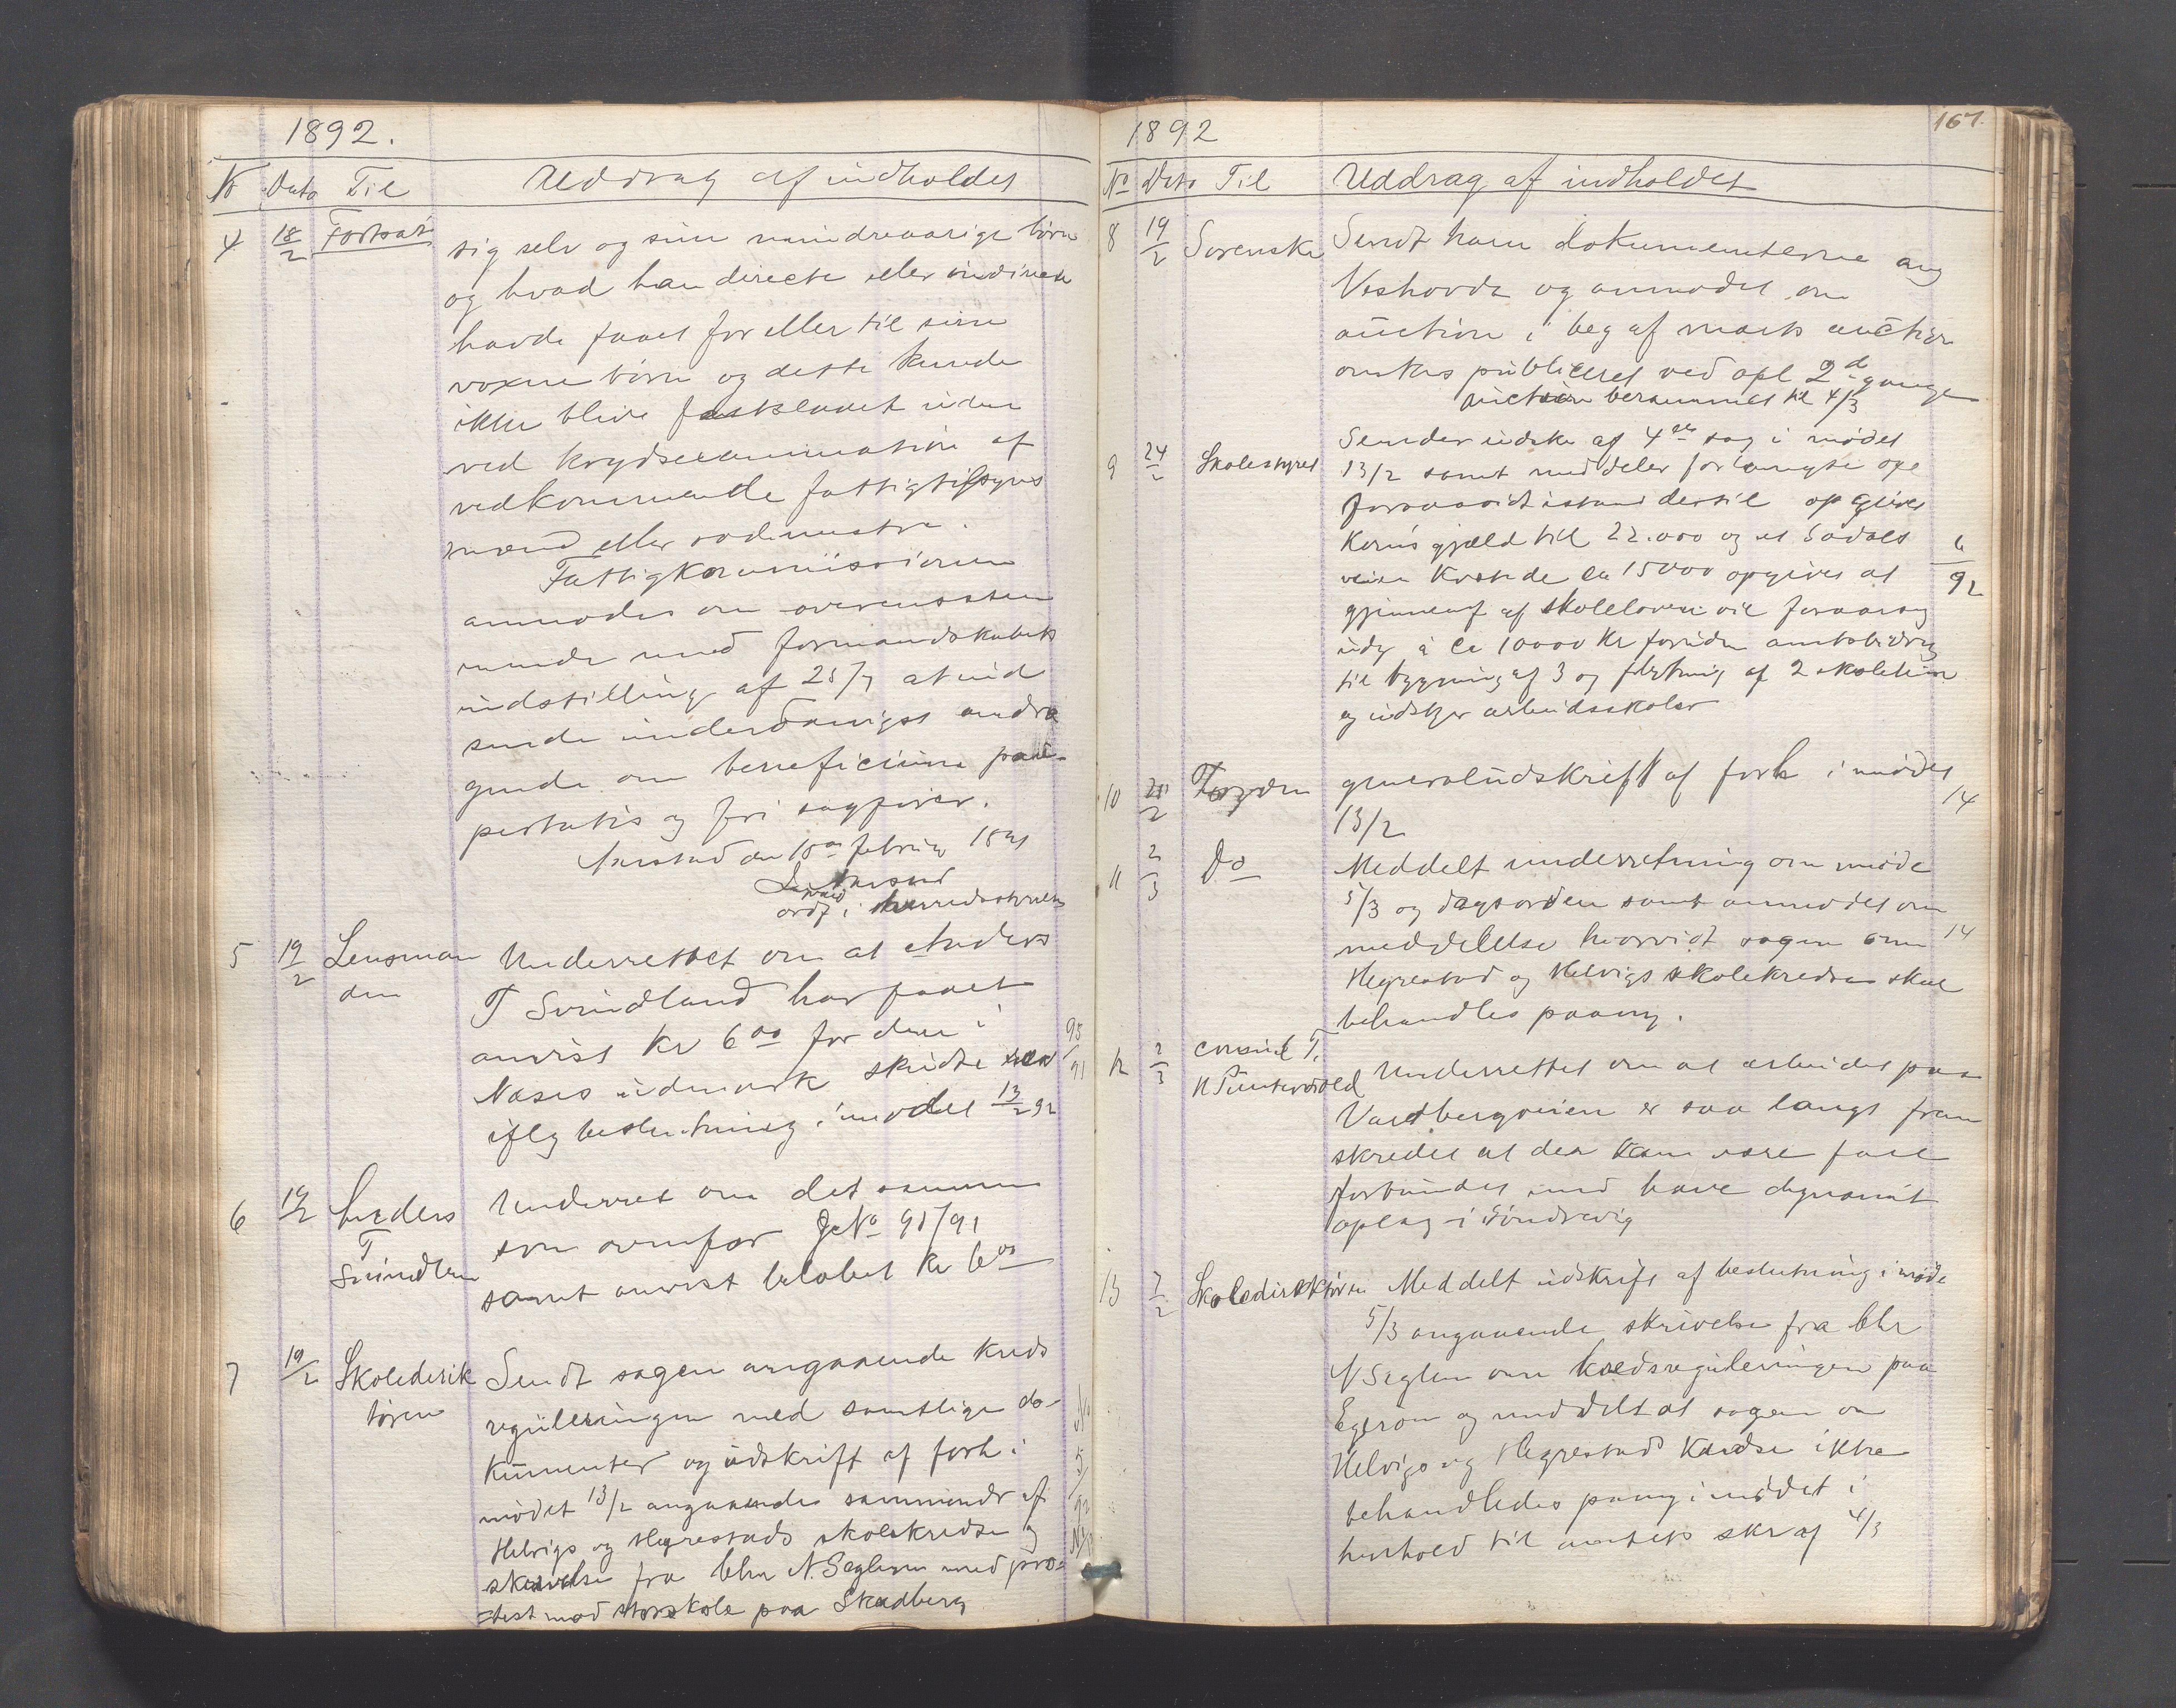 1892.
No Dato Til Uddrag af indholdet
4 18/2 Fortsat sig selv og sine mindreaarige børn
og hvad han directe eller indirecte
havde faaet for eller til sine
voxne børn og dette kunde
ikke blive fastslaaet uden
ved krydsexamination af
vedkommende fattigtilsyns
mænd eller rodemestre.
Fattigkommissionen
anmodes om overensstem
mende med formandskabets
indstilling af 25/7 at ind
sende underdanigst andra
gende om beneficium pau-
pertatis og fri sagfører.
den 18de februar
ordf i herredsstyret
5 19/2 Lensman
den
Underrettet om at Anders
T Svindland har faaet
anvist kr 6 00 for den i
Næses udmark skudte
iflg beslutning i mødet 13/2 92
95/91
6 19/2 Anders
T
Svindlan
Underret om det samme
som ovenfor JcNo 95/91
samt anvist beløbet kr 6 00
7 19/2 Skoledirik
tøren
Sendt sagen angaaende kreds
reguleringen med samtlige do-
kumenter og udskrift af forh i
mødet 13/2 angaaende sammendr af
Helvigs og Hegrestads skolekredse og
skrivelse fra lehr N. Seglem med pro=
=test mod storskole paa Skadberg
1892
167.
No Dato Til Uddrag af indholdet
8 19/2 Sorenskr Sendt ham dokumenterne ang
Veshovda og anmodet om
auction i beg af marts auction
ønskes publiceret ved opl 2d gange
auction berammet til 4/3
9 24/2 Skolestyret Sender udskr af 4de sag i mødet
13/2 samt meddeler forlangte opl
forsaavidt istand dertil opgiver
Koms gjæld til 22.000 og at Sodals
veien kostede ca 15000 opgives at
gjennemf af skoleloven vil foraarsag
udg à ca 10000 Kr foruden amtsbidrag
til bygning af 3 og flytning af 2 skolehuse
og indskjr arbeidsskoler
6/92
10 25/2 Fogden generaludskrift af forh i mødet
13/2
14
11 2/3 Do Meddelt underretning om møde
5/3 og dagsorden samt anmodet om
meddelelse hvorvidt sagen om
Hegrestad og Helvigs skolekredse skal
behandles paany.
14
12 2/3 consul T.
N Puntervold Underrettet om at arbeidet paa
Vardbergveien er saa langt frem
skredet at der kan være fare
forbundet med have dynamit
oplag i Søndrevig
13 7/2 Skoledirektøren Meddelt udskrift af beslutning i møde
5/3 angaaende skrivelse fra lehr
N Seglem om kredsreguleringen paa
Egerøen og meddelt at sagen om
Helvigs og Hegrestads kredse ikke
behandledes paany i mødet i
henhold til amtets skr af 4/3